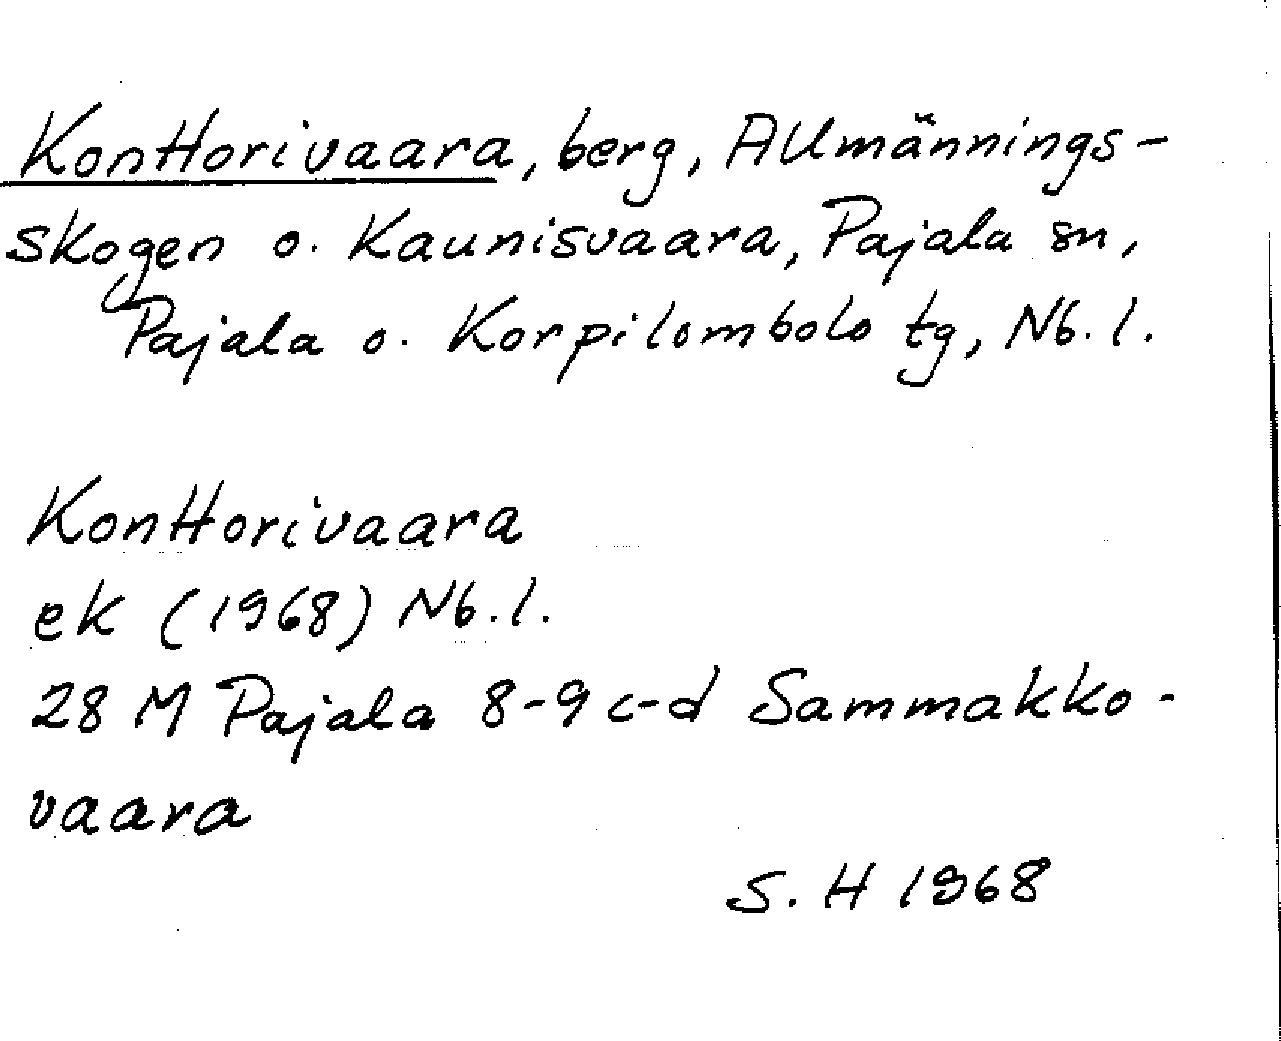 Konttorivaara, berg, Allmännings-
skogen o. Kaunisvaara, Pajala sn,
Pajala o. Korpilombolo tg, Nb. l.
Konttorivaara
ek (1968) Nb. l.
28 M Pajala 8-9 c-d Sammakko-
vaara
S. H 1968